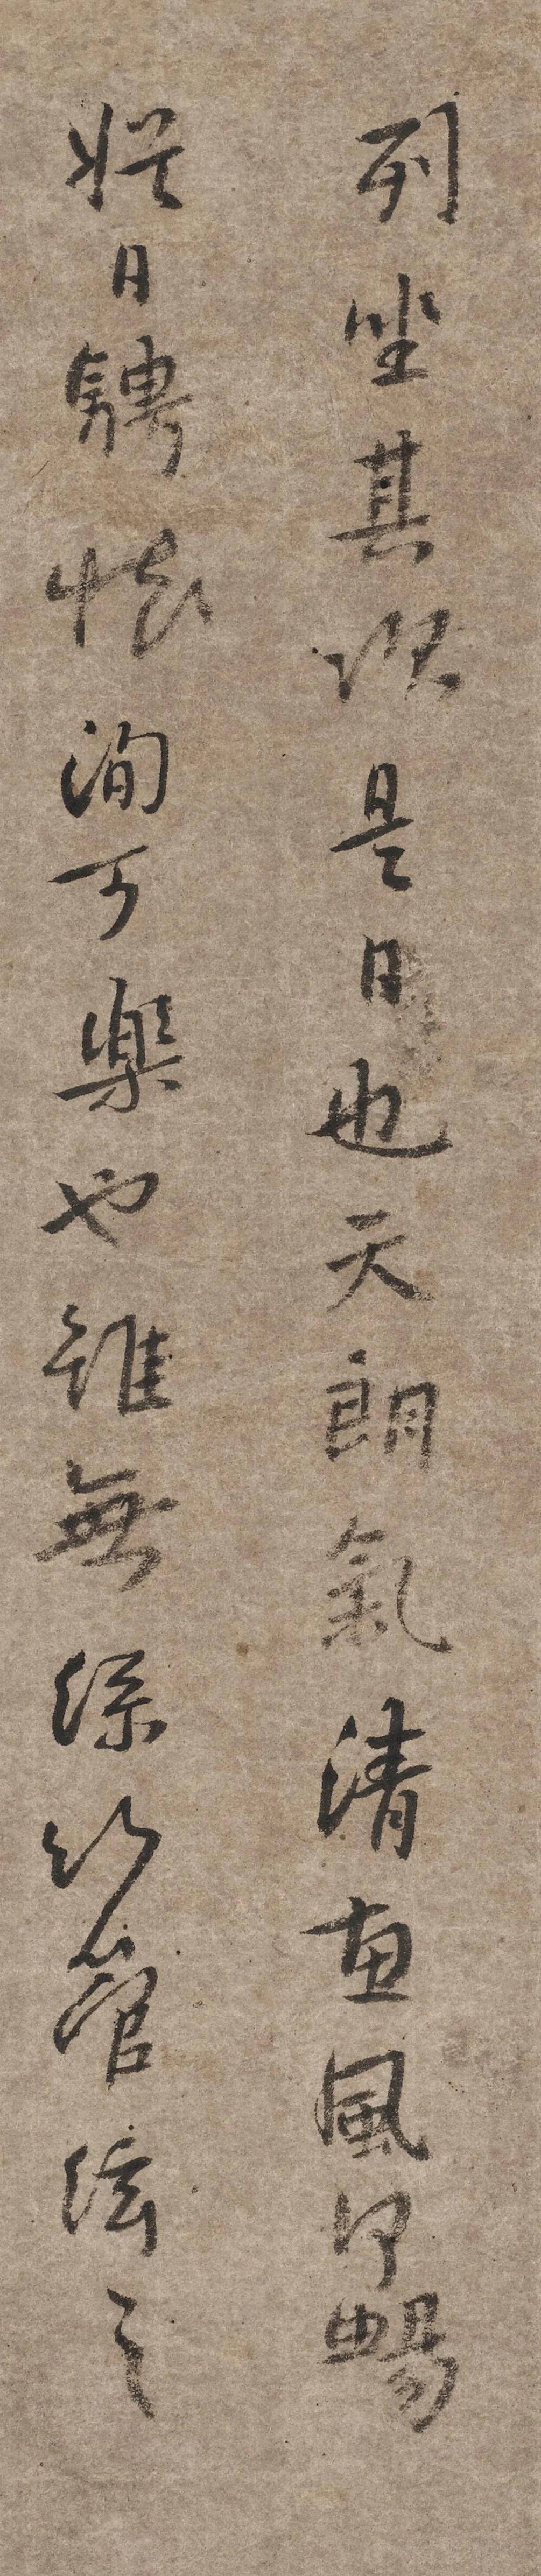 列坐其次是日也天朗氣清惠風和暢
娛日騁懷洵可樂也雖無絲竹管絃之